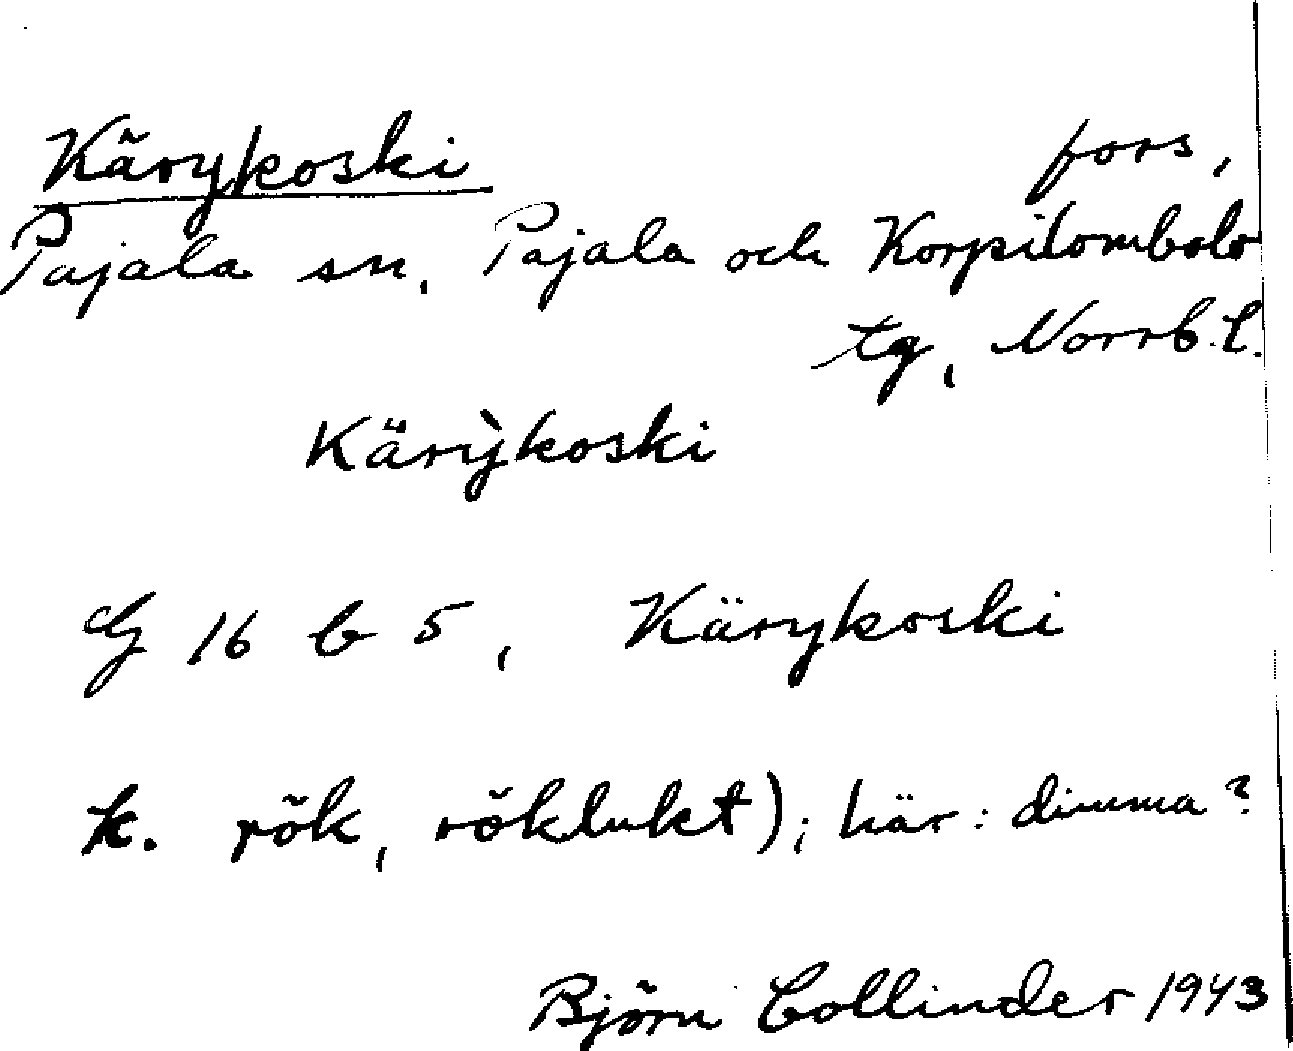 Käry/koski fors,
Pajala sn, Pajala och Korpilombolo
tg, Norrb. l.
Kärỳkoski
G 16 b 5, Kärykoski
k. rök, röklukt); här: dimma?
Björn Collinder 1943